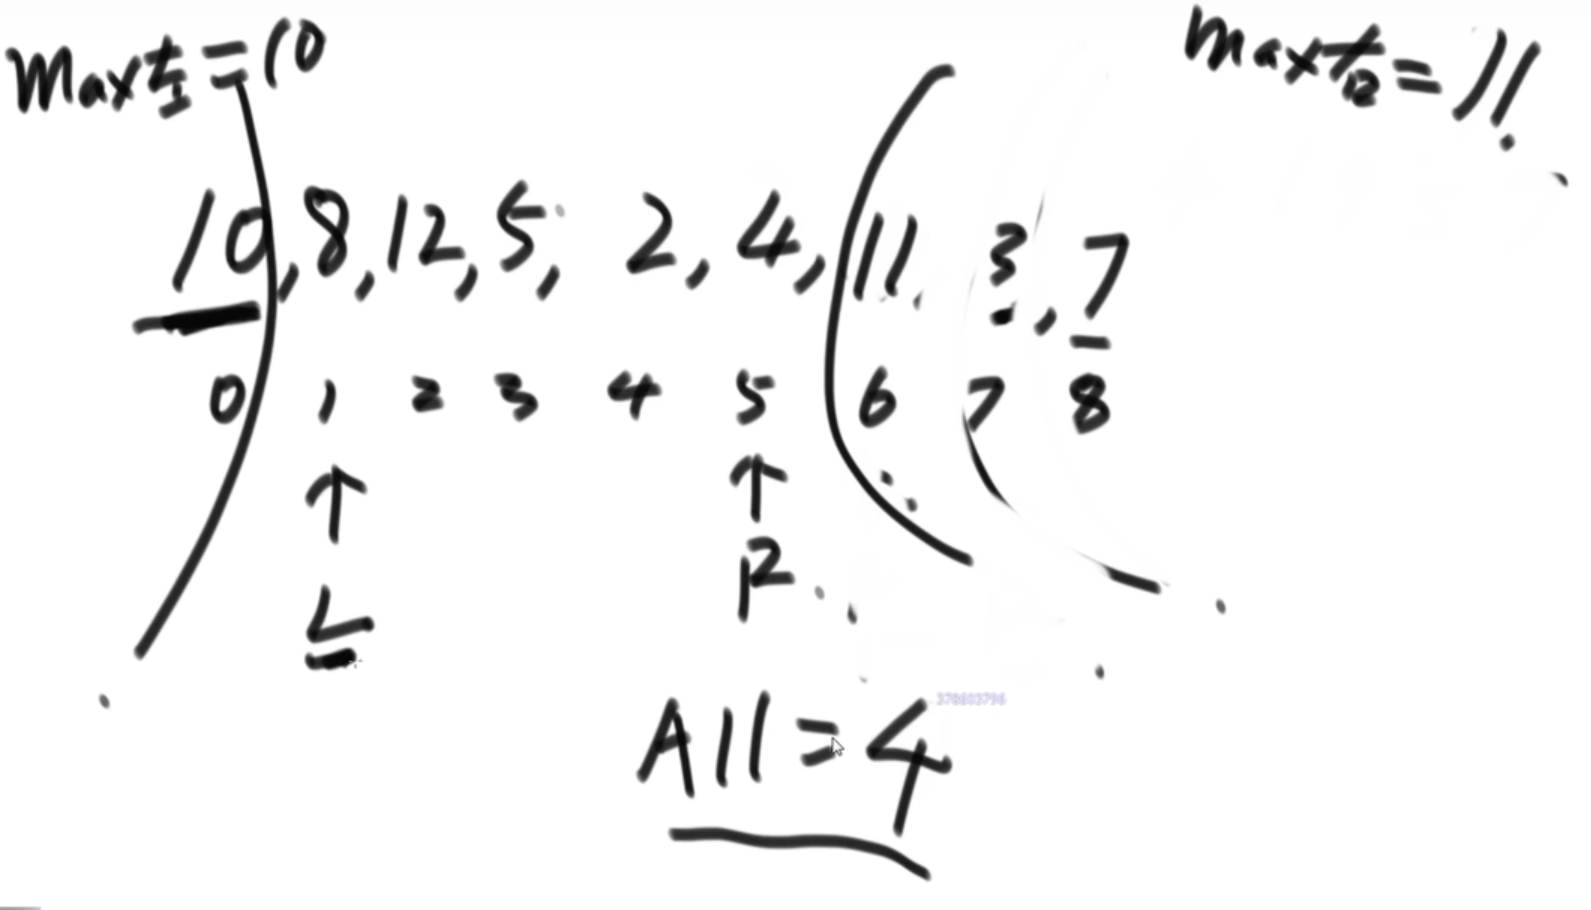 Max左=10
max右=11
10,8,12,5, 2,4,11, 3,7
0 1 2 3 4 5 6 7 8
L R
All=4
378803796